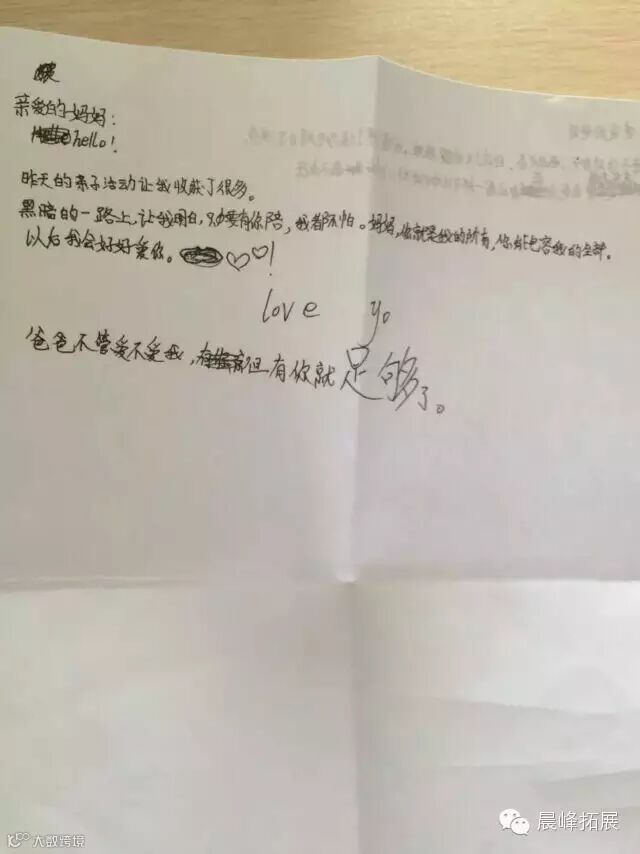 亲爱的妈妈：
hello！
昨天的亲子活动让我收获了很多。
黑暗的一路上，让我明白，只要有你陪，我都不怕。妈妈，你就是我的所有，你能包容我的全部。
以后我会好好爱你。♡♡！
love yo
爸爸不管爱不爱我，但有你就足够了。
晨峰拓展
大数跨境